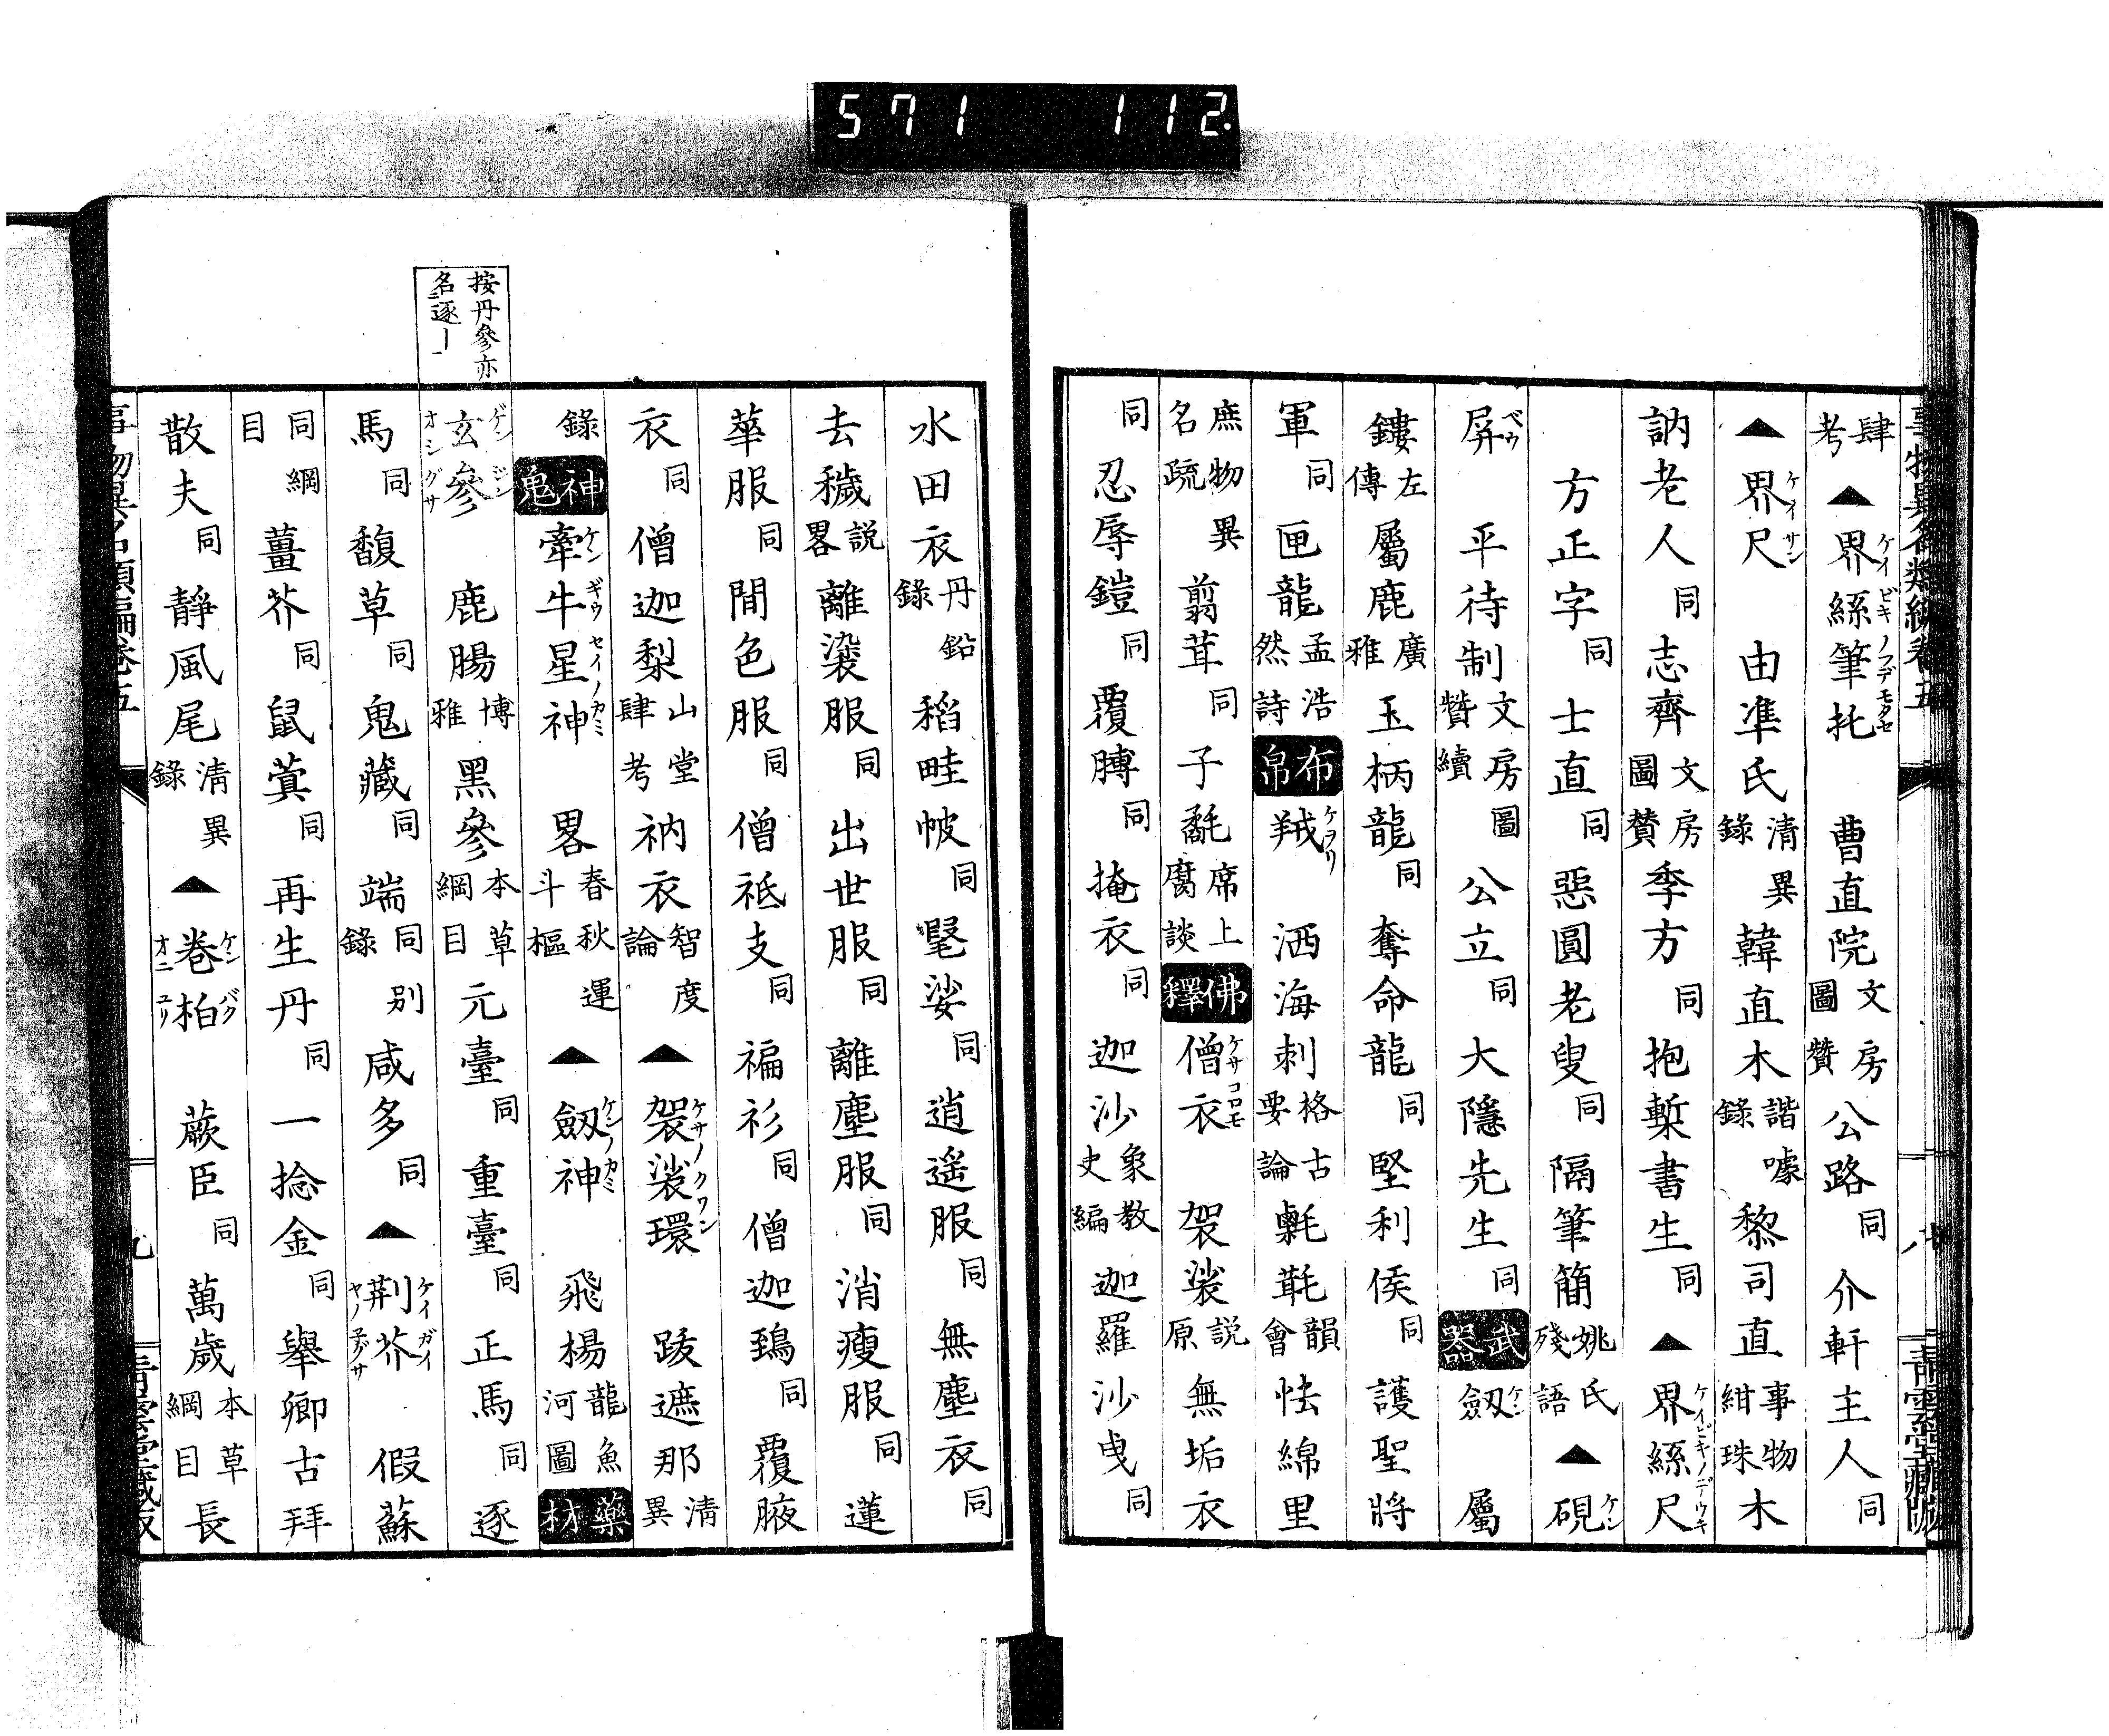 571 112.
事物異名類編卷五
青雲堂藏版
肆考▲界絲筆托 ケイビキノフデモタセ 曹直院 文房圖贊 公路 同 介軒主人 同
▲界尺 ケイサン 由準氏 清異錄 韓直木 諧噱錄 黎司直 事物紺珠 木
訥老人 同 志齊 文房圖贊 季方 同 抱槧書生 同 ▲界絲尺
方正字 同 士直 同 惡圓老叟 同 隔筆簡 姚氏殘語 ▲硯 ケン
屏 ベウ 平待制 文房圖贊續 公立 同 大隱先生 同 武器 劔 ケン 屬
鏤 左傳 屬鹿 廣雅 玉柄龍 同 奪命龍 同 堅利侯 同 護聖將
軍 同 匣龍 孟浩然詩 布帛 羢 ケヲリ 洒海剌 格古要論 氎毼 韻會 怯綿里
庶物異名疏 翦茸 同 子氄 席上腐談 佛釋 僧衣 ケサコロモ 袈裟 説原 無垢衣
同 忍辱鎧 同 覆膊 同 掩衣 同 迦沙 象教史編 迦羅沙曳 同
水田衣 丹鉛錄 稻畦帔 同 㲯娑 同 逍遙服 同 無塵衣 同
去穢 説畧 離染服 同 出世服 同 離塵服 同 消瘦服 同 蓮
華服 同 間色服 同 僧祇支 同 褊衫 同 僧迦鵄 同 覆腋
衣 同 僧迦梨 山堂肆考 衲衣 智度論 ▲袈裟環 ケサノクワン 跋遮那 清異
錄 神鬼 牽牛星神 ケンギウセイノカミ 畧 春秋運斗樞 ▲劔神 ケンノカミ 飛楊 龍魚河圖 藥材
按丹參亦名逐一
玄參 ゲンジン オシグサ 鹿腸 博雅 黑參 本草綱目 元臺 同 重臺 同 正馬 同 逐
馬 同 馥草 同 鬼藏 同 端 同別錄 咸多 同 ▲荆芥 ケイガイ 假蘇
同綱目 薑芥 同 鼠蓂 同 再生丹 同 一捻金 同 舉卿古拜
散夫 同 靜風尾 清異錄 ▲卷柏 ケンバク 蕨臣 同 萬歲 本草綱目 長